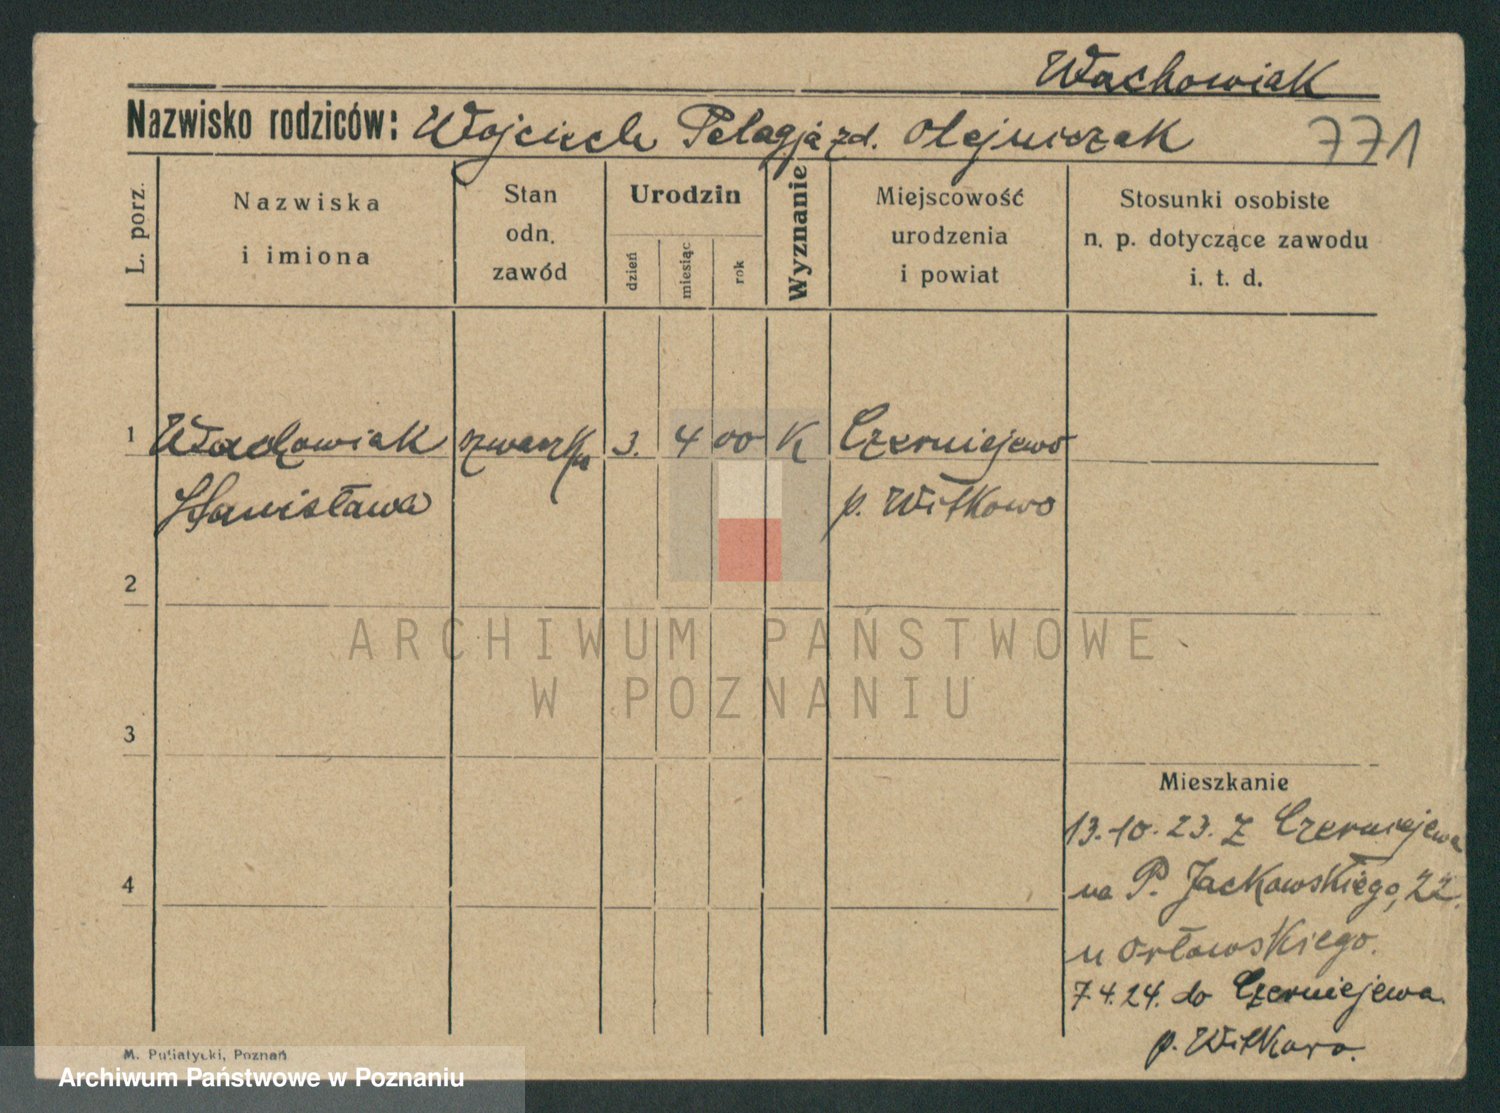 Wachowiak
Nazwisko rodziców: Wojciech Pelagja zd. Olejniczak
771
L. porz.
Nazwiska
i imiona
Stan
odn.
zawód
Urodzin
dzień
miesiąc
rok
Wyznanie
Miejscowość
urodzenia
i powiat
Stosunki osobiste
n. p. dotyczące zawodu
i. t. d.
1 Wachowiak szwaczka 3. 4 00 K Czerniejewo
Stanisława p. Witkowo
2
ARCHIWUM PAŃSTWOWE
W POZNANIU
3
4
Mieszkanie
13.10.23. z Czerniejewa
na P. Jackowskiego, 22.
u Orłowskiego.
7.4.24. do Czerniejewa
p. Witkowo.
M. Putiatycki, Poznań
Archiwum Państwowe w Poznaniu